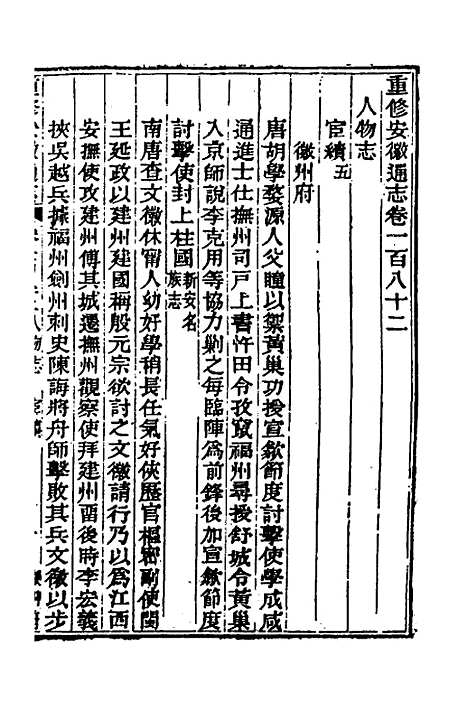 重修安徽通志卷一百八十二
人物志
宦績五
徽州府
唐胡學婺源人父瞳以禦黃巢功授宣歙節度討擊使學成咸
通進士仕撫州司戶上書忤田令孜竄福州尋授舒城令黃巢
入京師說李克用等協力勦之每臨陣為前鋒後加宣歙節度
討擊使封上柱國新安名族志
南唐查文徽休甯人幼好學稍長任氣好俠歷官樞密副使閩
王延政以建州建國稱殷元宗欲討之文徽請行乃以為江西
安撫使攻建州傅其城遷撫州觀察使拜建州留後時李宏義
挾吳越兵據福州劍州刺史陳誨將舟師擊敗其兵文徽以步